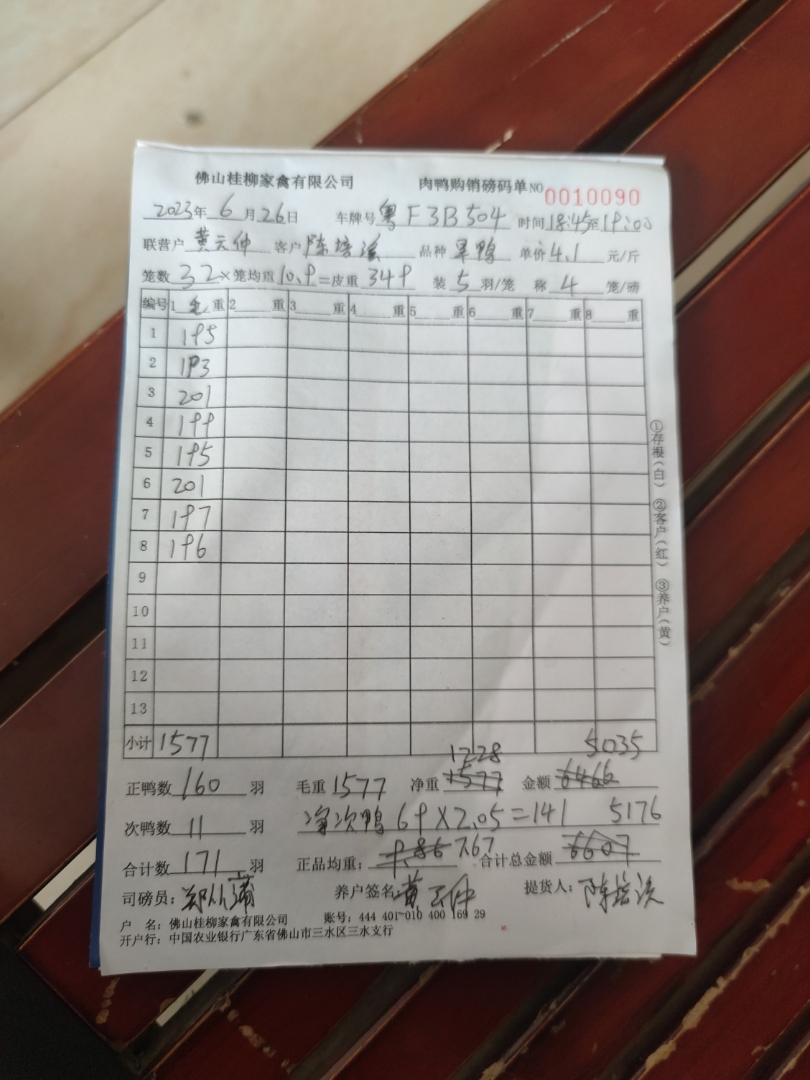 佛山桂柳家禽有限公司 肉鸭购销磅码单 NO 0010090
2023年 6 月 26 日 车牌号 粤F3B504 时间 18:45至19:00
联营户 黄云仲 客户 陈培 品种 旱鸭 单价 4.1 元/斤
笼数 32 × 笼均重 10.9 = 皮重 349 装 5 羽/笼 称 4 笼/磅
编号 1 毛 重 2 重 3 重 4 重 5 重 6 重 7 重 8 重
1 195
2 193
3 201
4 199
5 195
6 201
7 197
8 196
9
10
11
12
13
小计 1577
1228 5035
正鸭数 160 羽 毛重 1577 净重 1577 金额 6466
次鸭数 11 羽 净次鸭 69×2.05=141 5176
合计数 171 羽 正品均重: 9.86 7.67 合计总金额 6607
司磅员: 养户签名: 黄云仲 提货人: 陈培
户 名: 佛山桂柳家禽有限公司 账号: 444 401 010 400 169 29
开户行: 中国农业银行广东省佛山市三水区三水支行
①存根(白) ②客户(红) ③养户(黄)